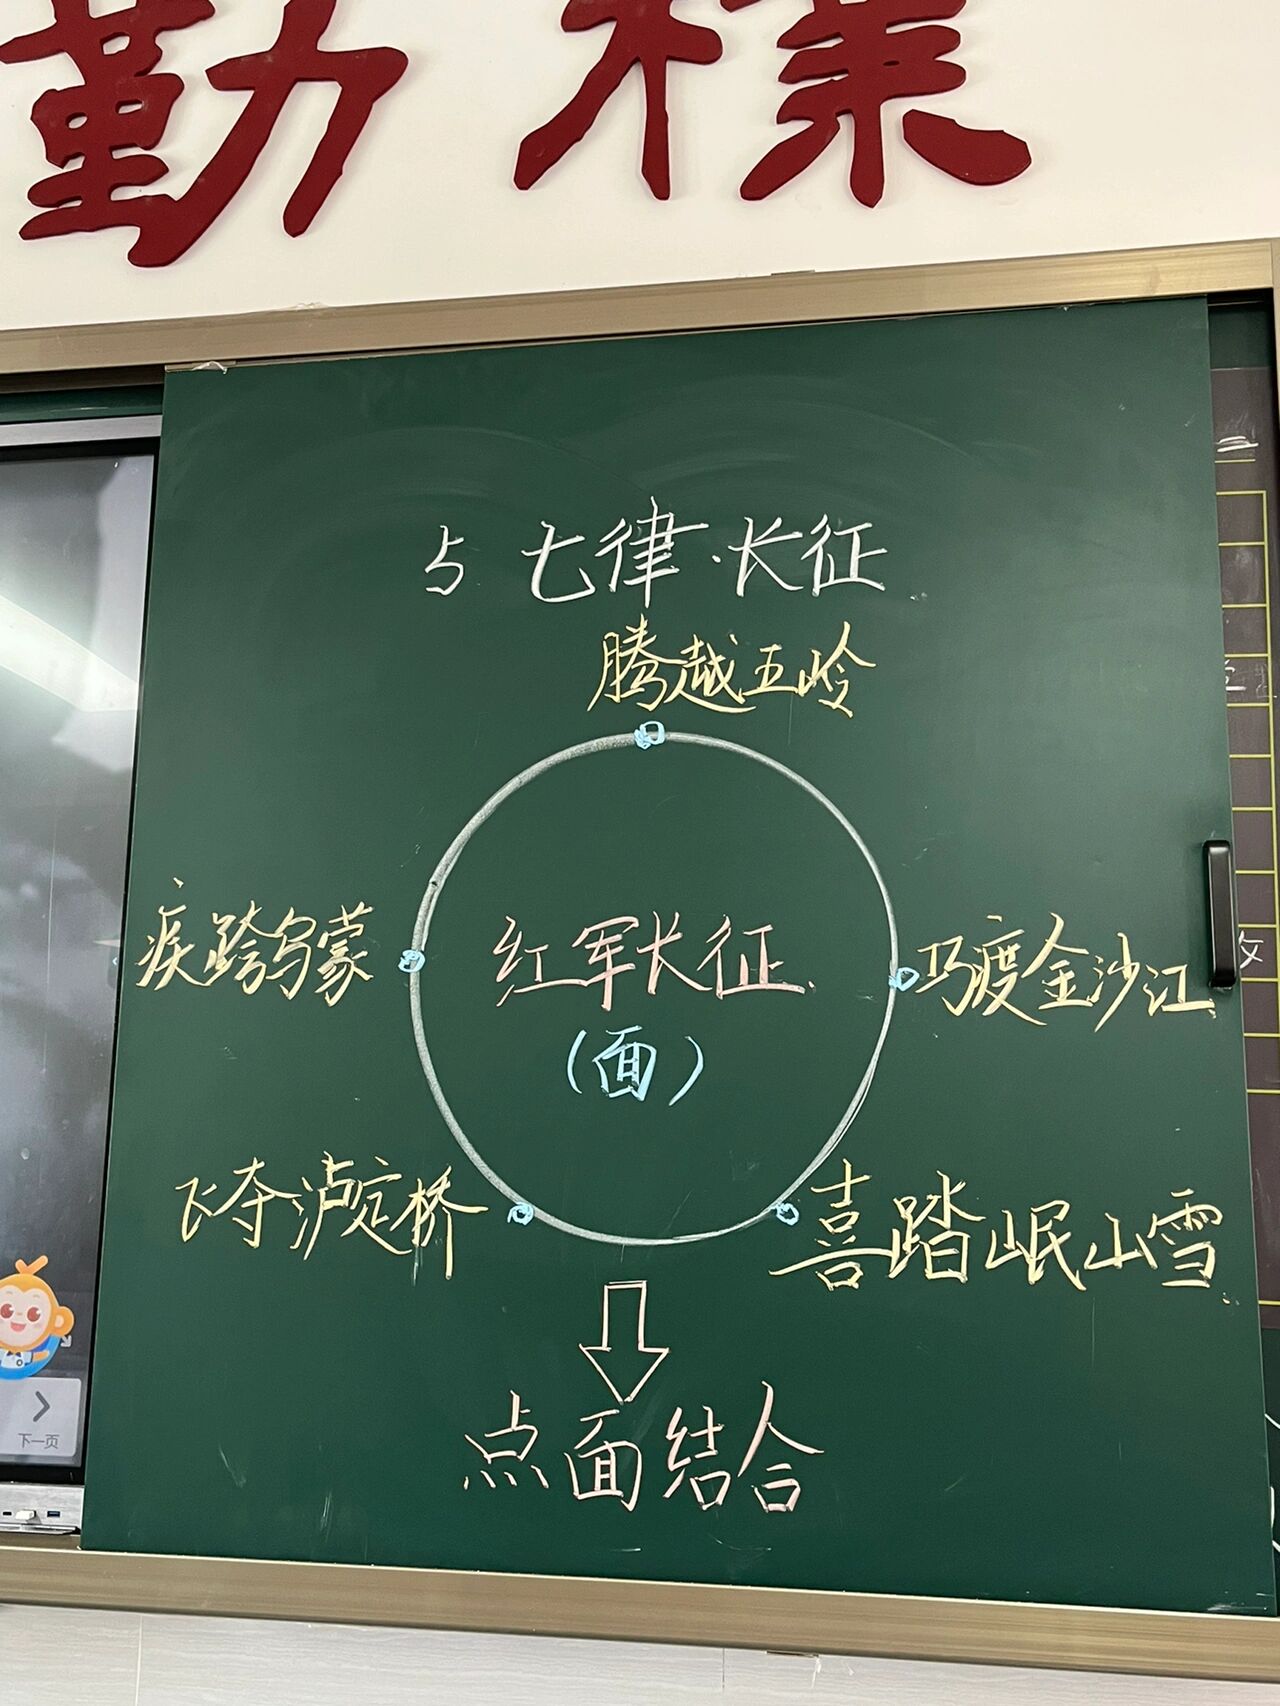 勤 朴
5 七律·长征
腾越五岭
疾跨乌蒙
红军长征
巧渡金沙江
(面)
飞夺泸定桥
喜踏岷山雪
点面结合
下一页